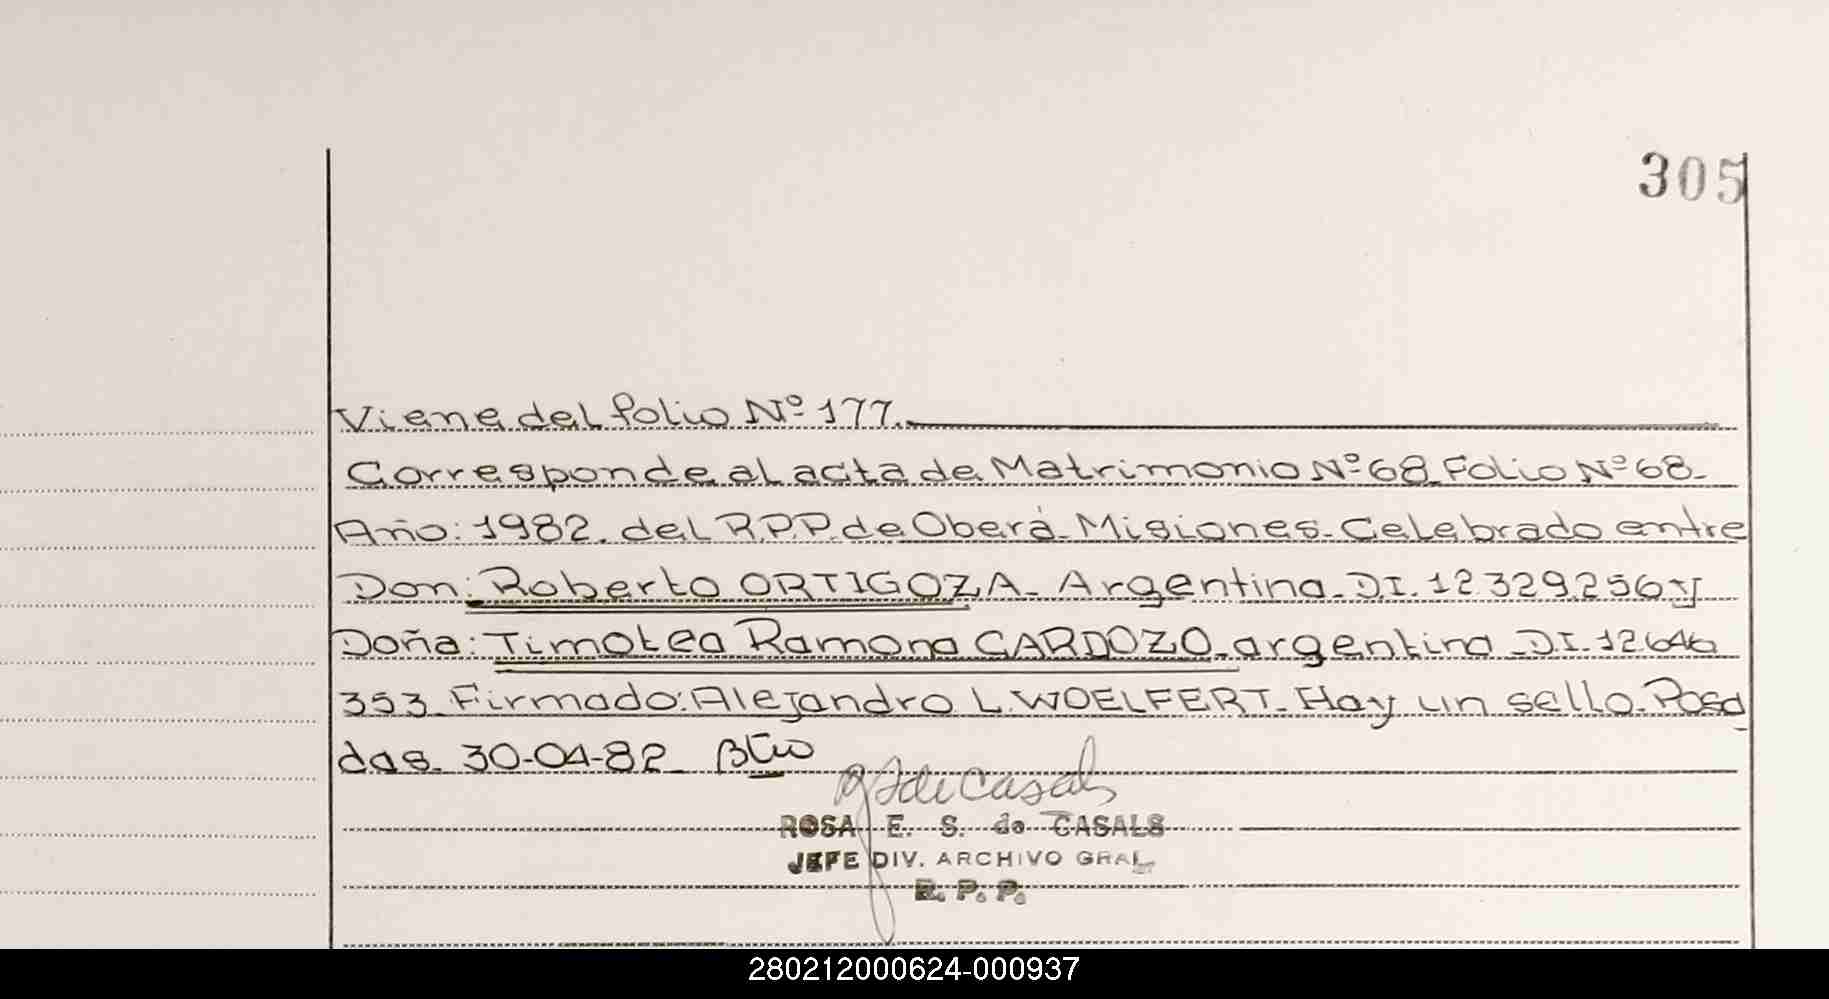 305
Viene del folio Nº 177.
Corresponde al acta de Matrimonio Nº 68 Folio Nº 68-
Año: 1982. del R.P.P. de Oberá-Misiones- Celebrado entre
Don: Roberto ORTIGOZA- Argentina- D.I. 12.329.256 y
Doña: Timotea Ramona CARDOZO- argentina - D.I. 12646
353- Firmado: Alejandro L. WOELFERT- Hay un sello- Posa
das- 30-04-82-
ROSA E. S. de CASALS
JEFE DIV. ARCHIVO GRAL
R. P. P.
280212000624-000937